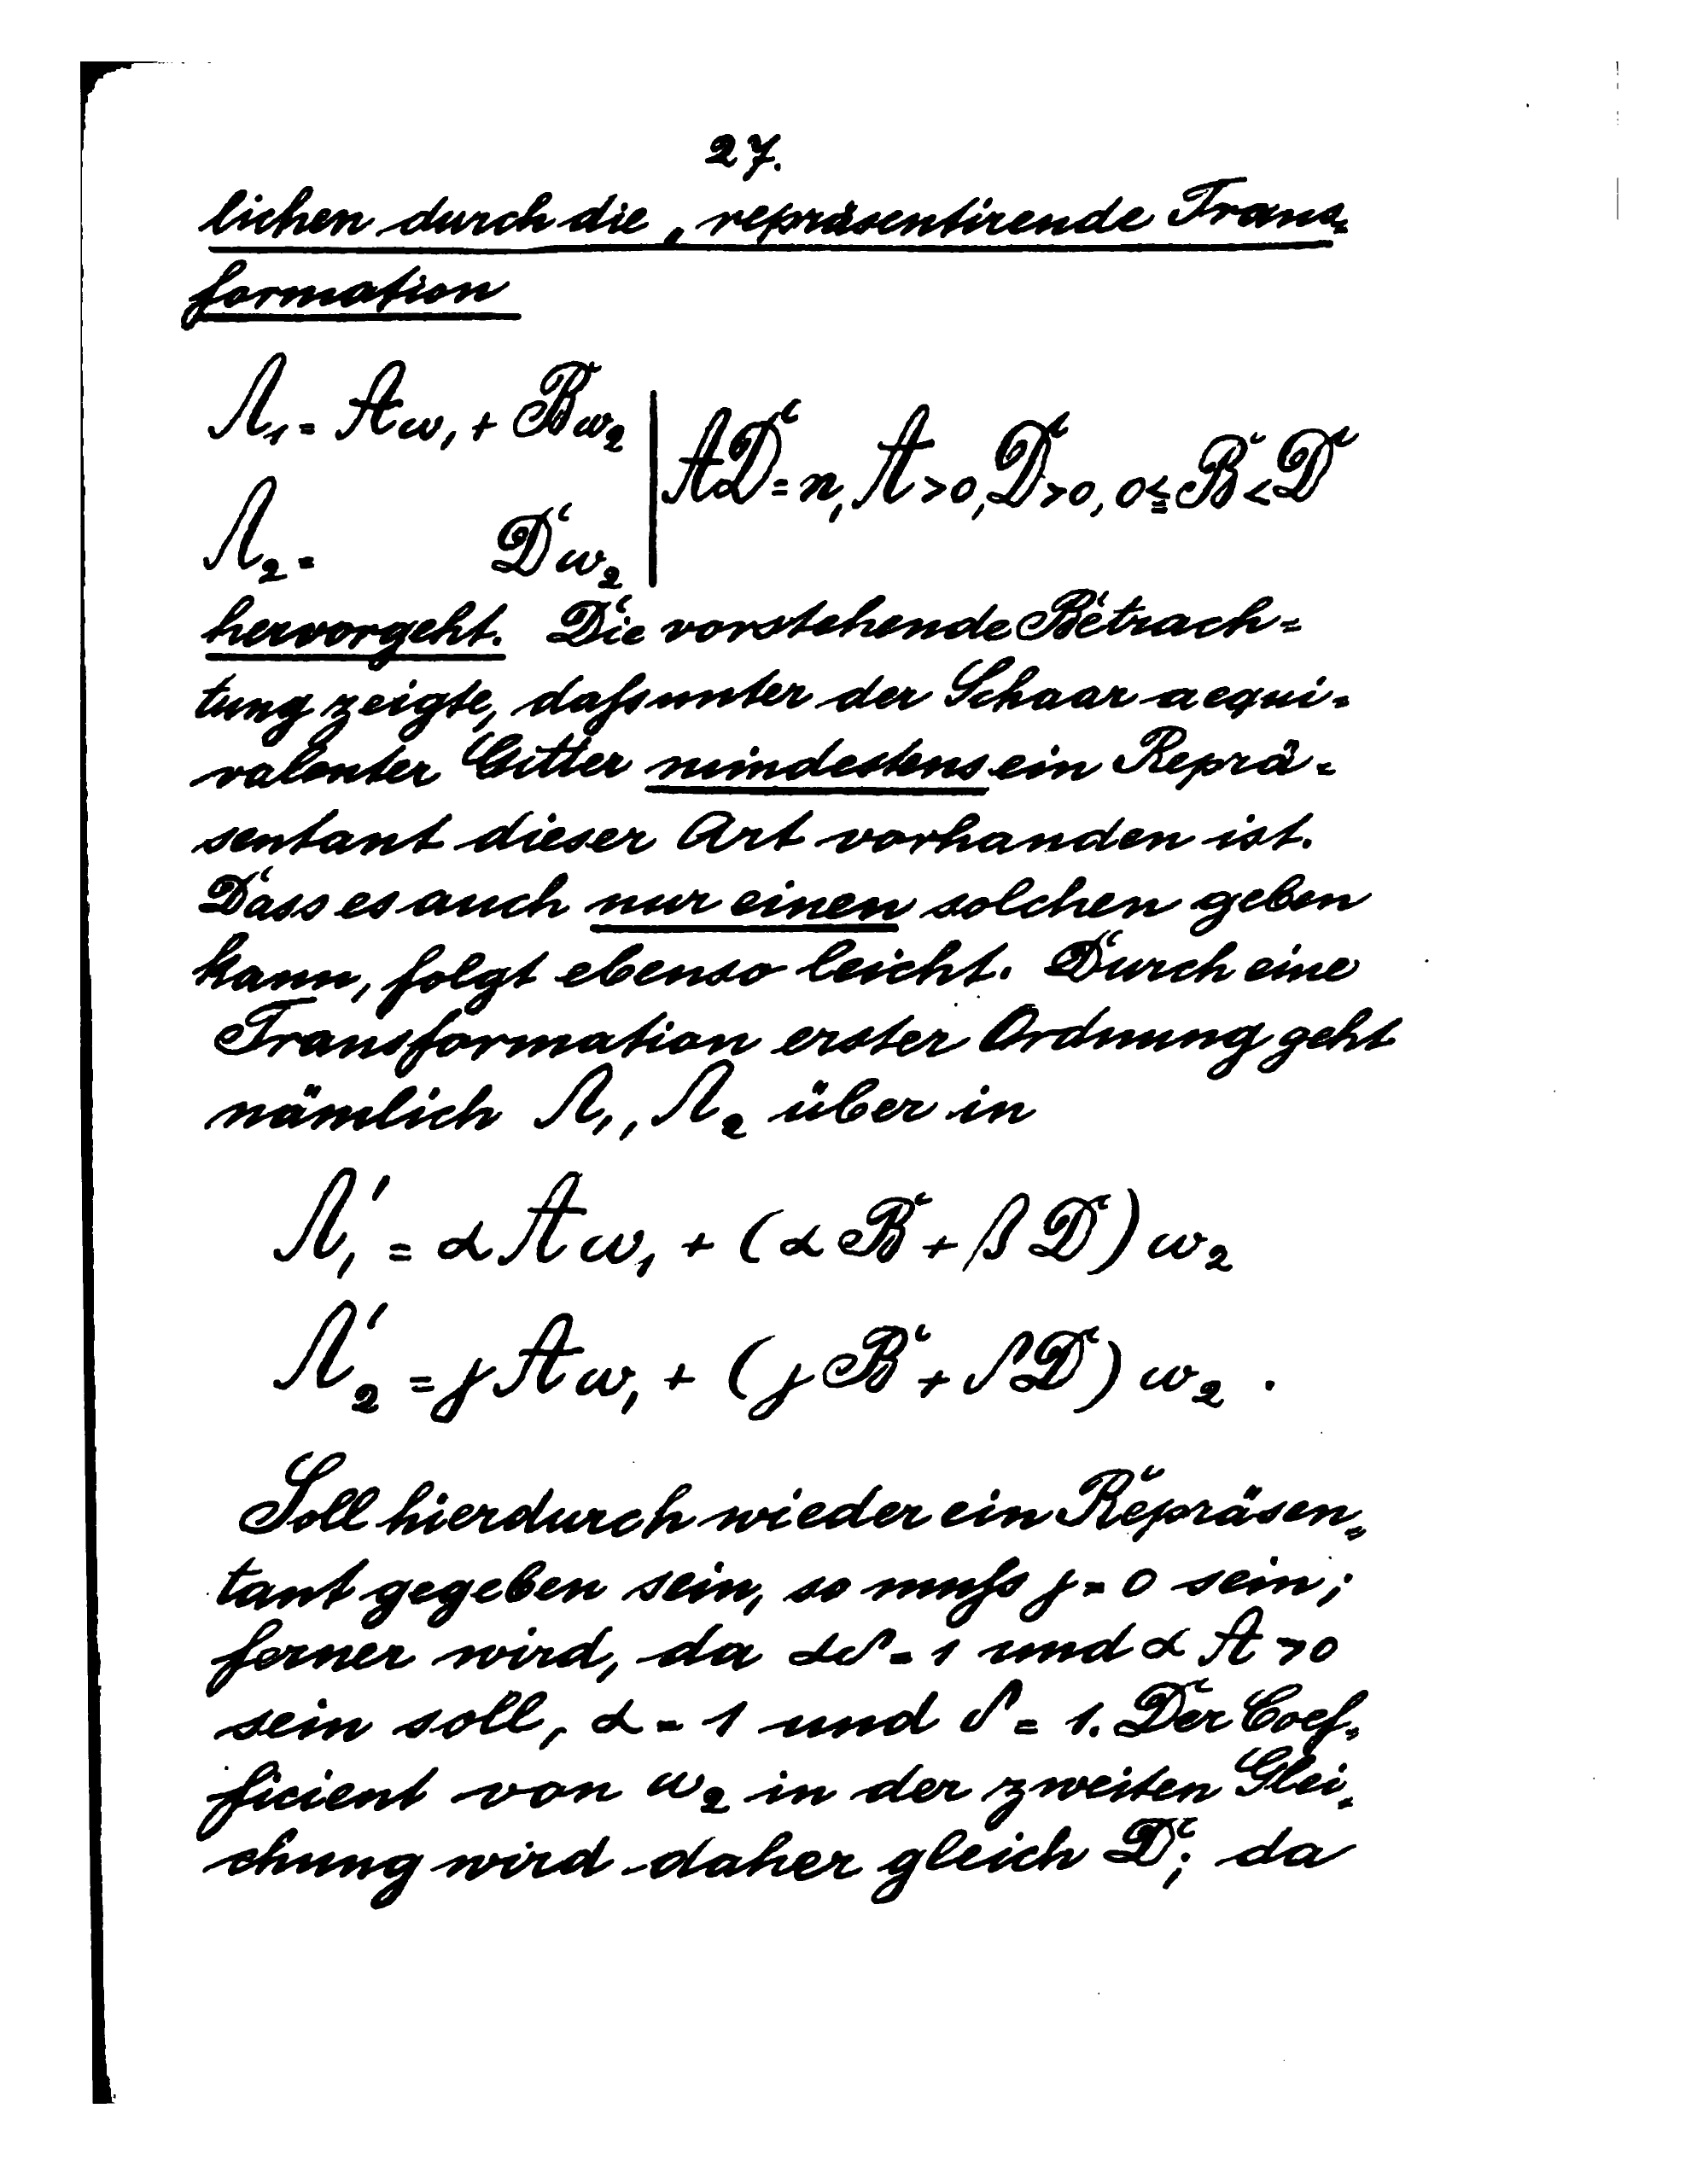 27.
lichen durch die „repräsentirende Trans=
formation
Λ₁ = Aω₁ + Bω₂ | AD = n, A > 0, D > 0, 0 ≦ B < D
Λ₂ = Dω₂
hervorgeht. Die vorstehende Betrach=
tung zeigte, dass unter der Schaar aequi=
valenter Gitter mindestens ein Reprä=
sentant dieser Art vorhanden ist.
Dass es auch nur einen solchen geben
kann, folgt ebenso leicht. Durch eine
Transformation erster Ordnung geht
nämlich Λ₁, Λ₂ über in
Λ₁′ = αAω₁ + (αB + βD) ω₂
Λ₂′ = γAω₁ + (γB + δD) ω₂ .
Soll hierdurch wieder ein Repräsen=
tant gegeben sein, so muss γ = 0 sein;
ferner wird, da αδ = 1 und αA > 0
sein soll, α = 1 und δ = 1. Der Coef=
ficient von ω₂ in der zweiten Glei=
chung wird daher gleich D; da